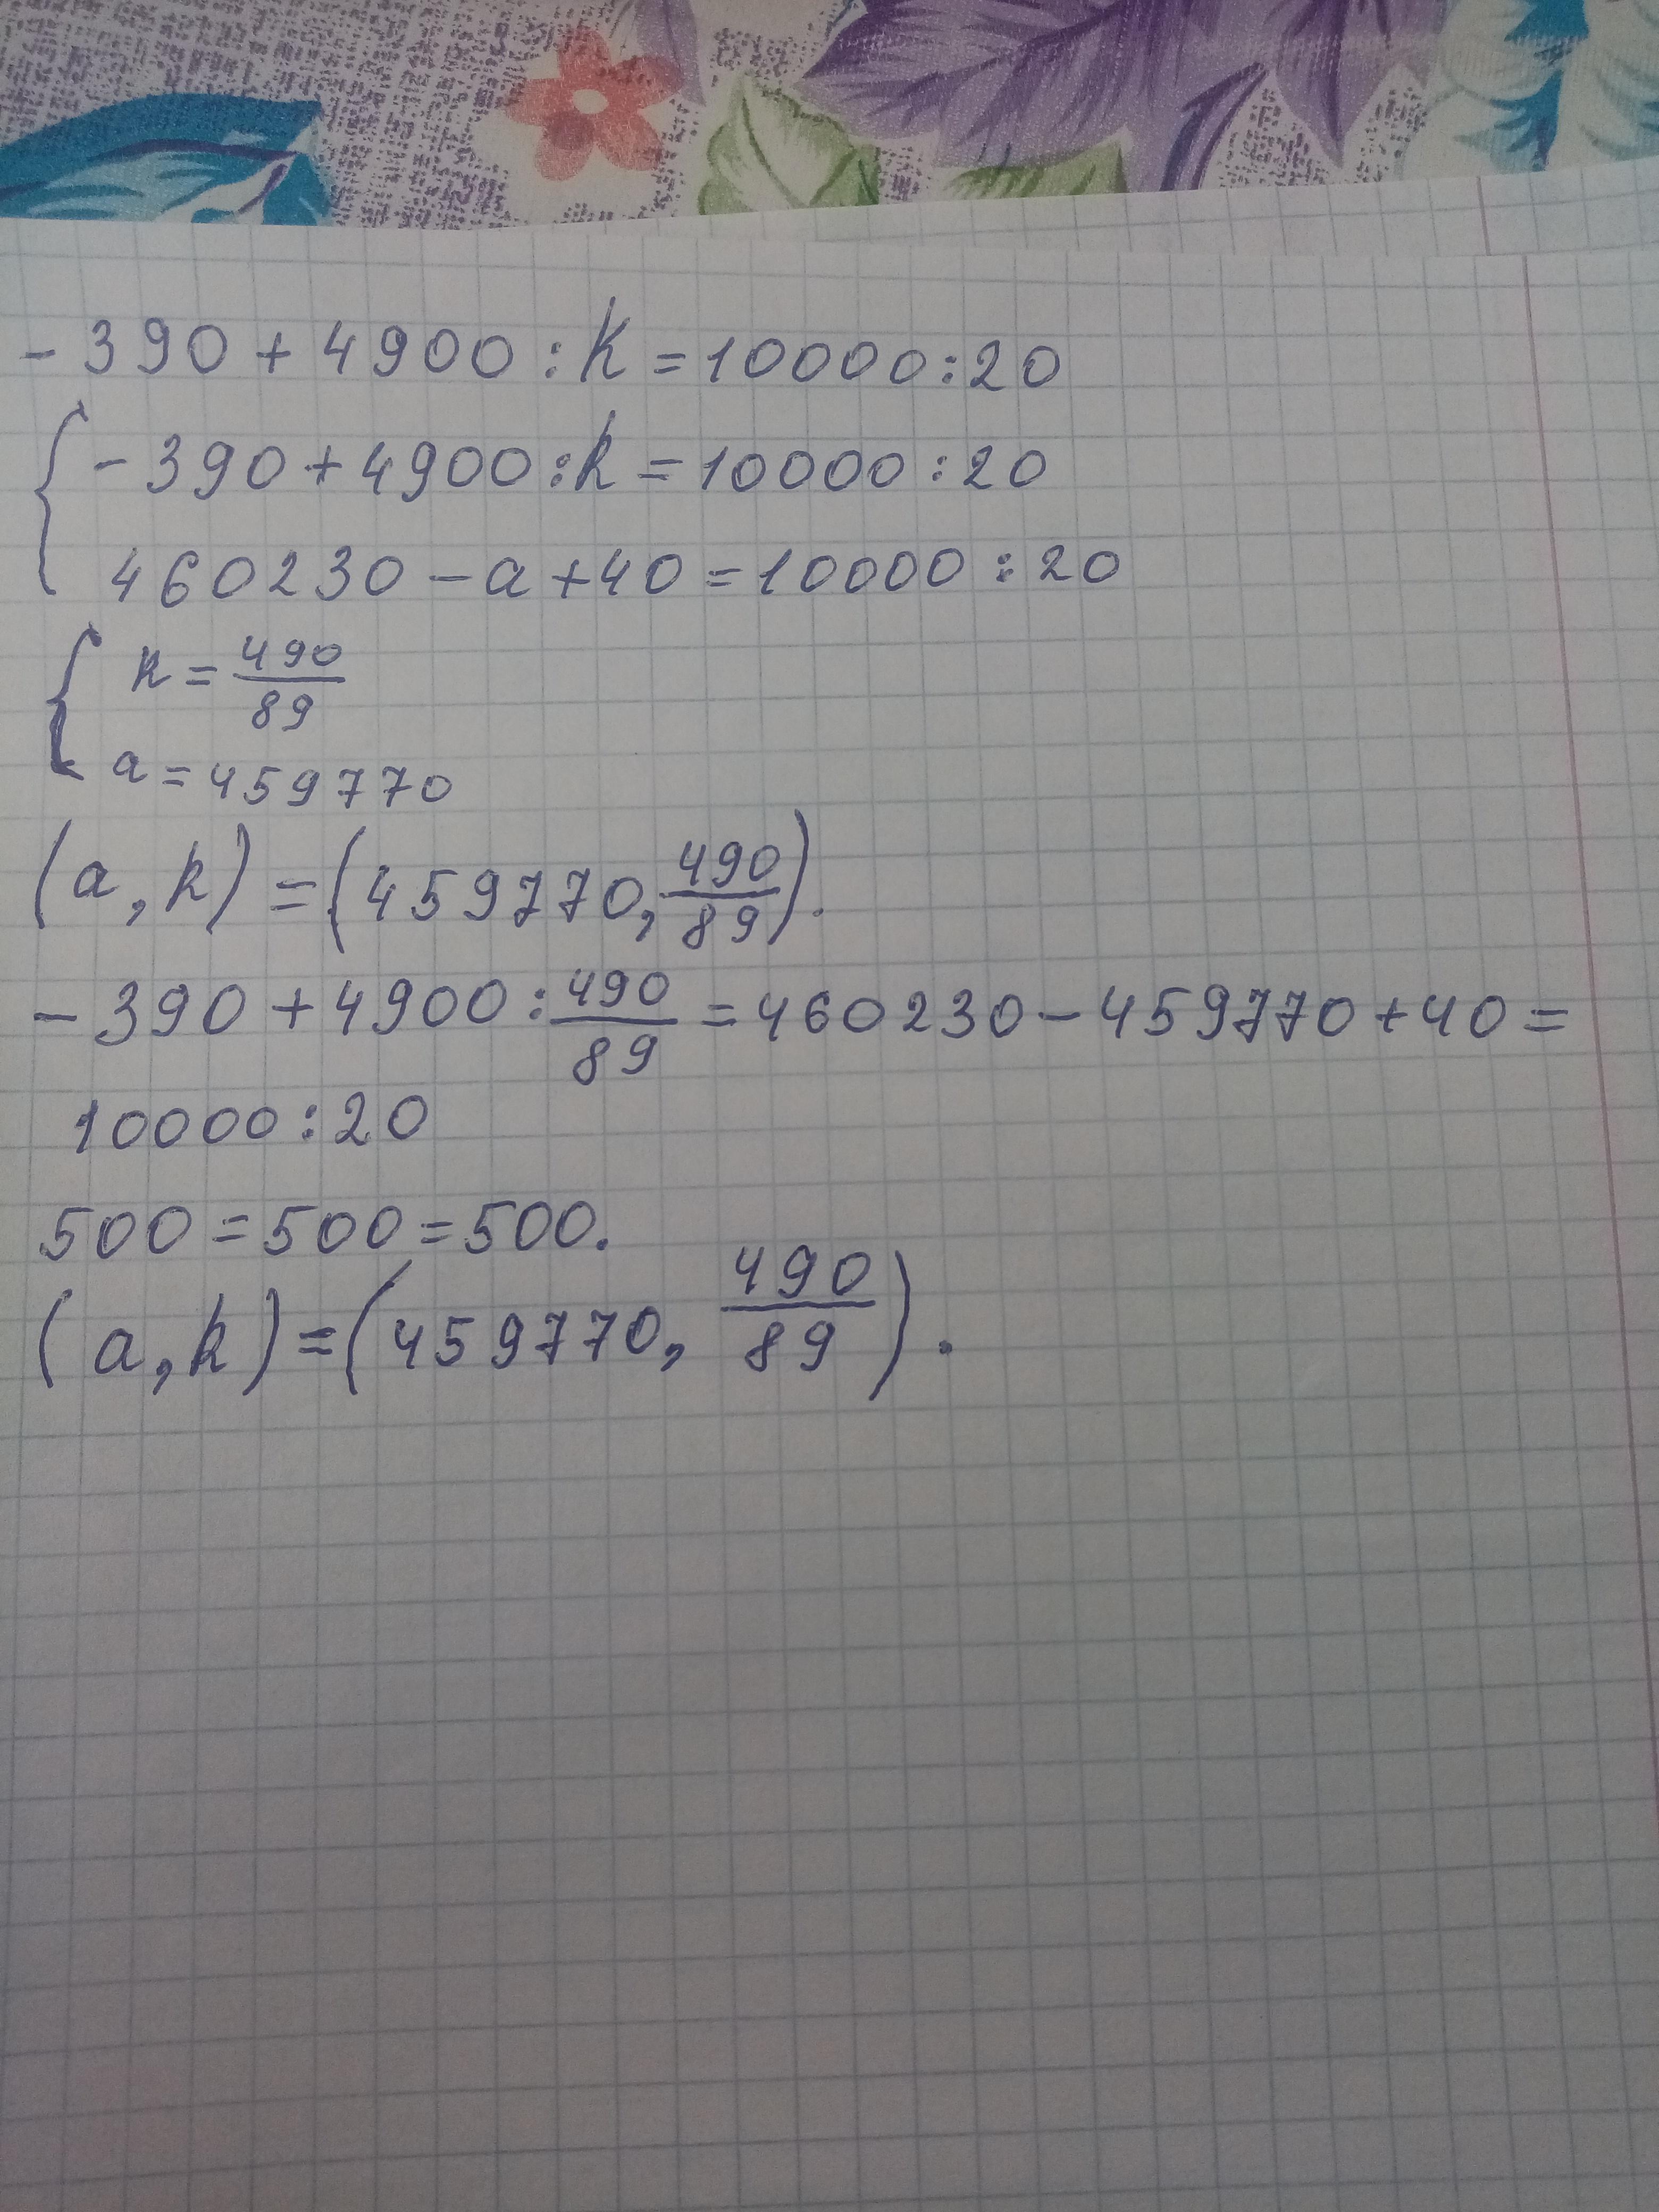 -390+4900:K=10000:20
{-390+4900:k=10000:20
460230-a+40=10000:20
{k=490/89
a=459770
(a,k)=(459770,490/89).
-390+4900:490/89=460230-459770+40=
10000:20
500=500=500.
(a,k)=(459770,490/89).